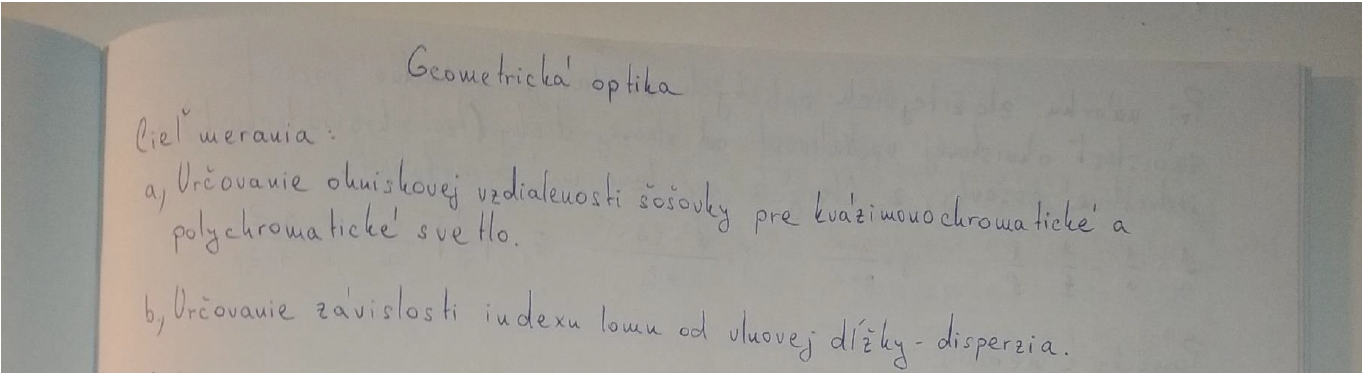 Geometrická optika
Cieľ merania:
a, Určovanie ohniskovej vzdialenosti šošovky pre kvázimonochromatické a
polychromatické svetlo.
b, Určovanie závislosti indexu lomu od vlnovej dĺžky - disperzia.